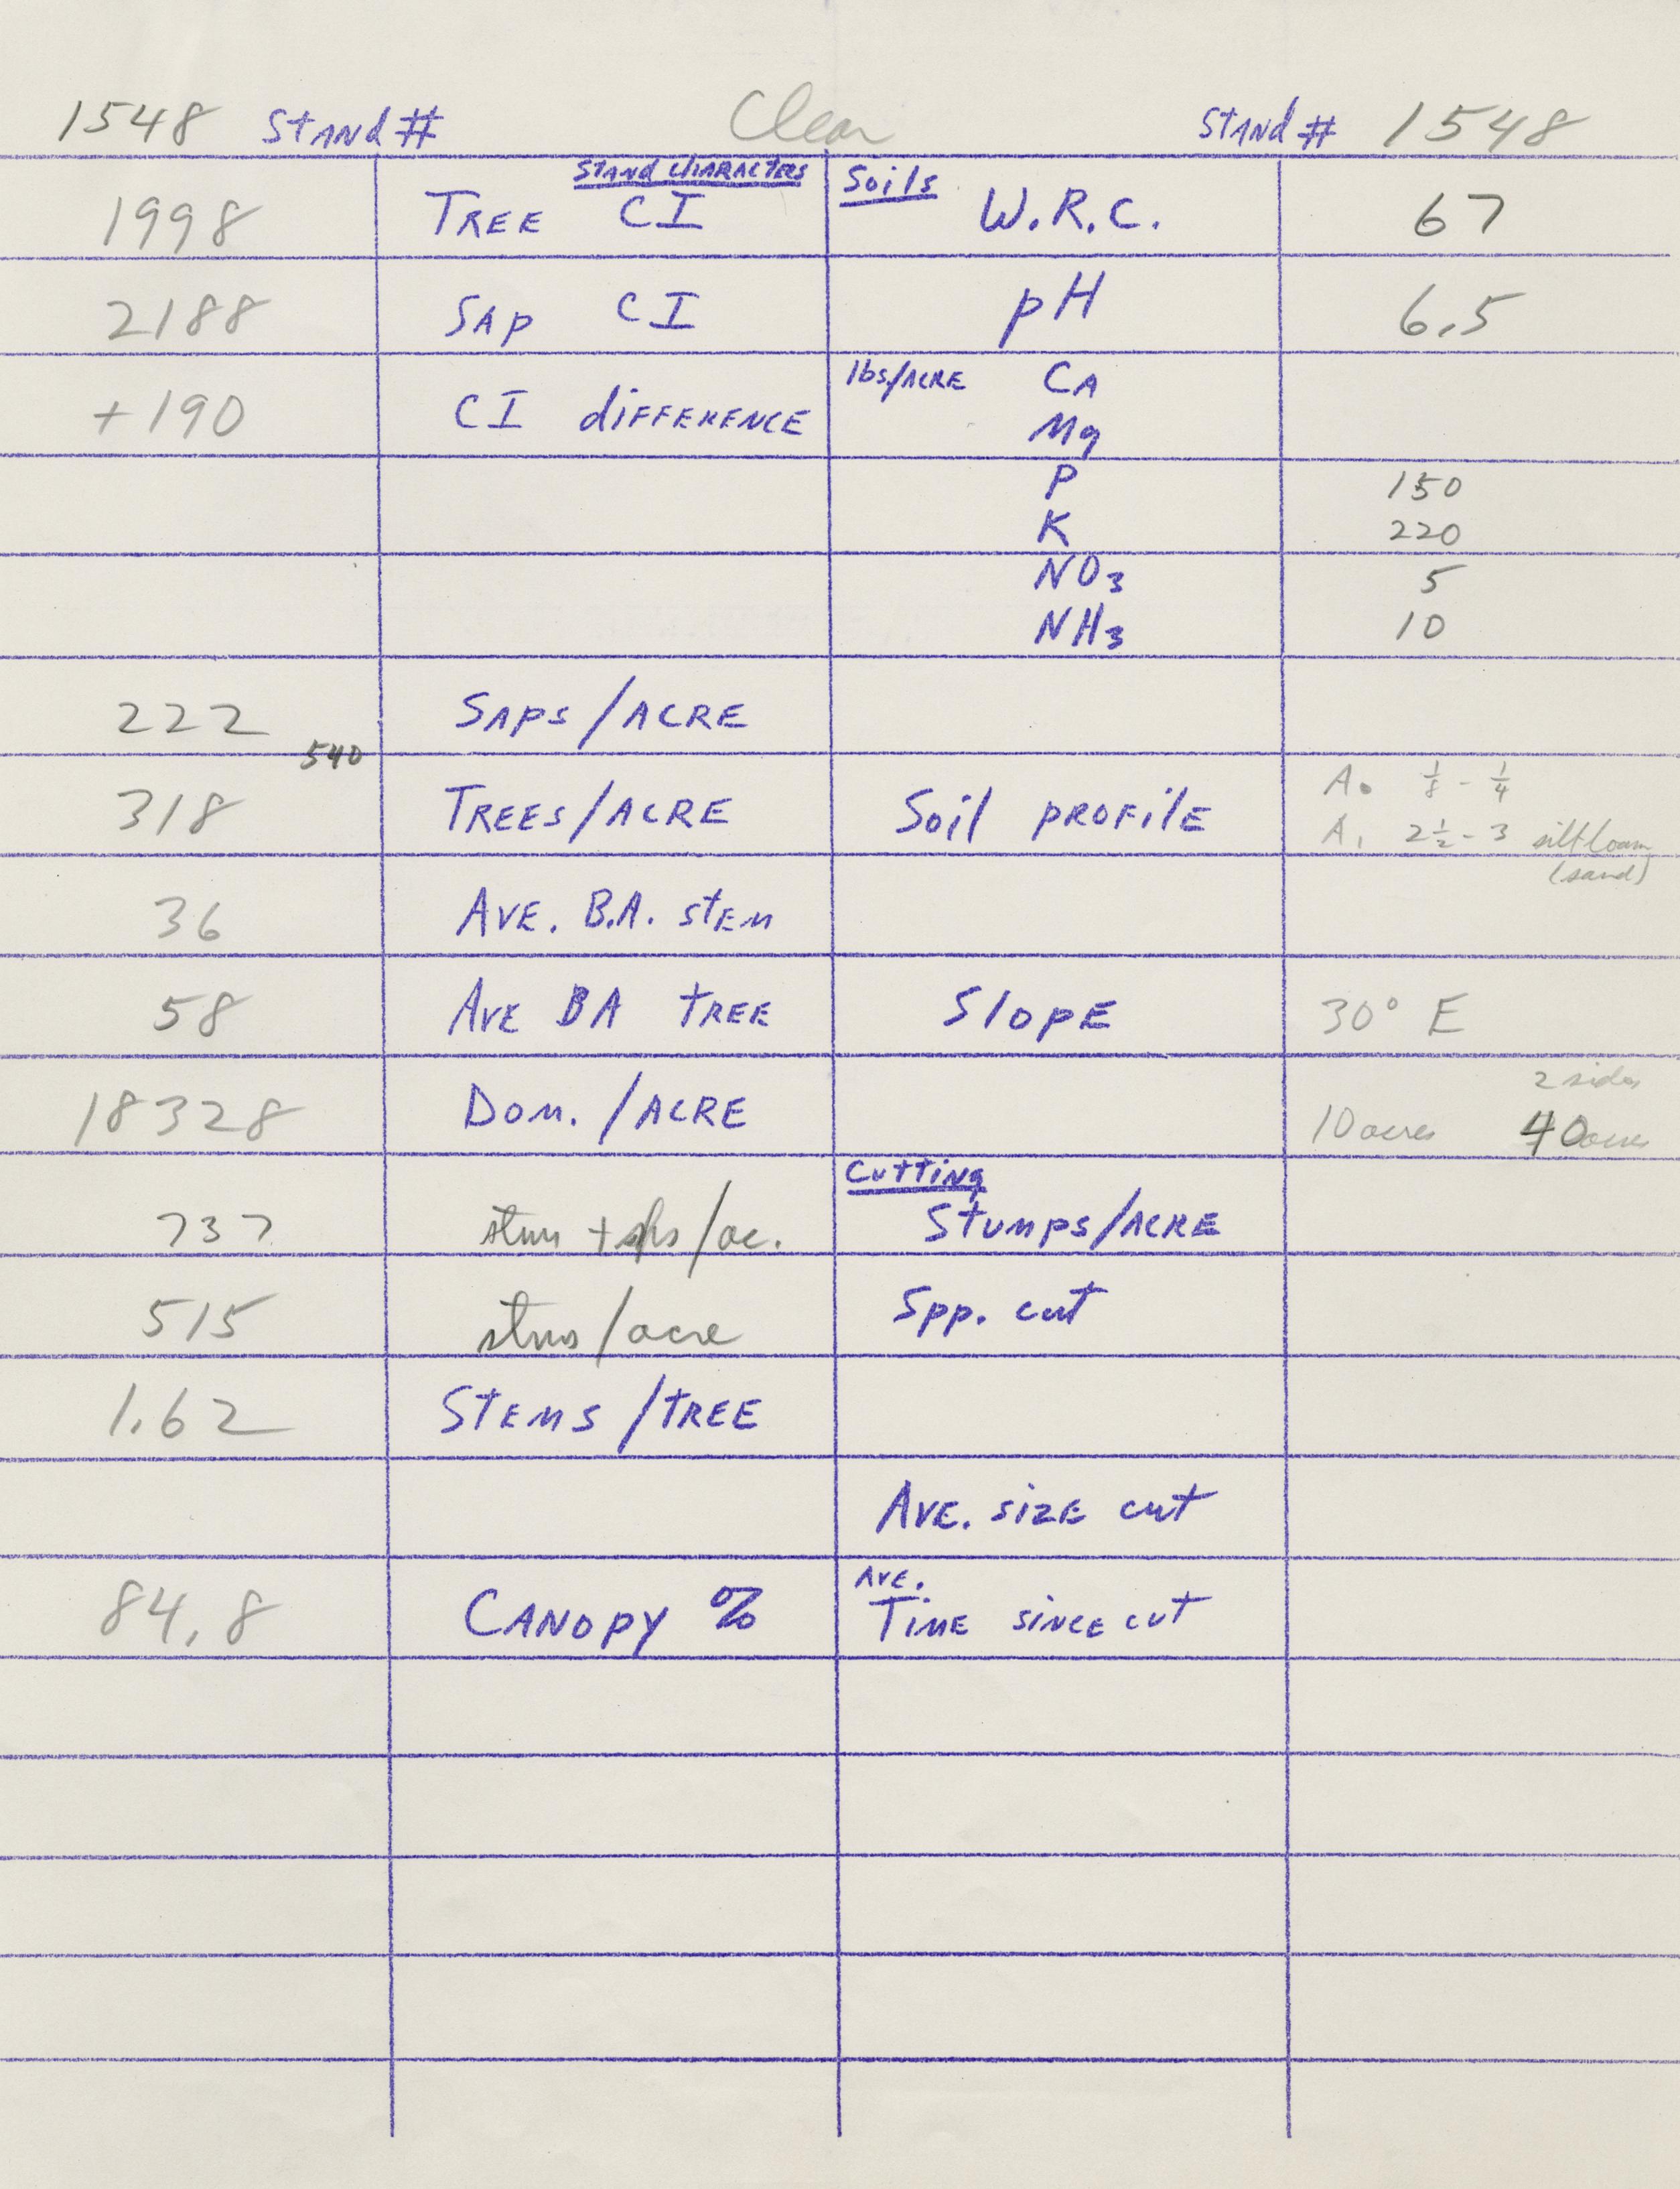 1548 Stand # Clear Stand # 1548
Stand Characters Soils
1998 Tree CI W.R.C. 67
2188 Sap CI pH 6.5
+190 CI difference lbs/Acre Ca
Mg
P 150
K 220
NO3 5
NH3 10
222 Saps/Acre
540
318 Trees/Acre Soil profile A0 1/8 - 1/4
A1 2 1/2 - 3 silt loam
(sand)
36 Ave. B.A. stem
58 Ave BA tree Slope 30° E
2 sides
18328 Dom./Acre 10 acres 40 acres
Cutting
737 stms + sps/ac. Stumps/Acre
515 stms/acre Spp. cut
1.62 Stems/tree
Ave. size cut
84.8 Canopy % Ave. Time since cut